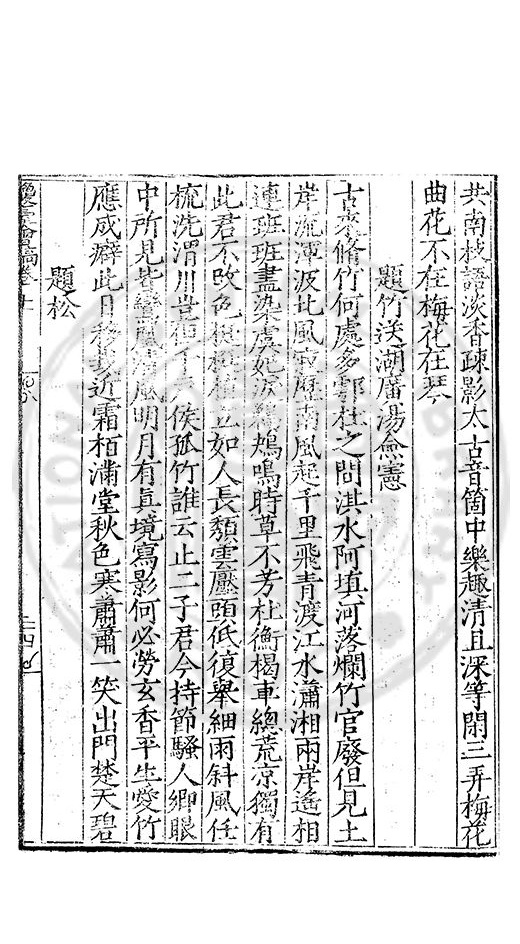 共南枝語淡香疎影太古音箇中樂趣清且深等閑三弄梅花
曲花不在梅花在琴
題竹送湖廣湯僉憲
古來脩竹何處多鄠杜之間淇水阿填河落爛竹官廢但見土
岸流渾波北風寂歷南風起千里飛青渡江水瀟湘兩岸遙相
連班班盡染虞妃淚鶗鴂鳴時草不芳杜衡楬車總荒京獨有
此君不改色挺挺植立如人長頹雲壓頭低復舉細雨斜風任
梳洗渭川豈但千戶侯孤竹誰云止二子君今持節騷人鄉眼
中所見皆鸞鳳清風明月有真境寫影何必勞玄香平生愛竹
應成癖此日移近霜栢滿堂秋色寒蕭蕭一笑出門楚天碧
題松
稿卷十
二四